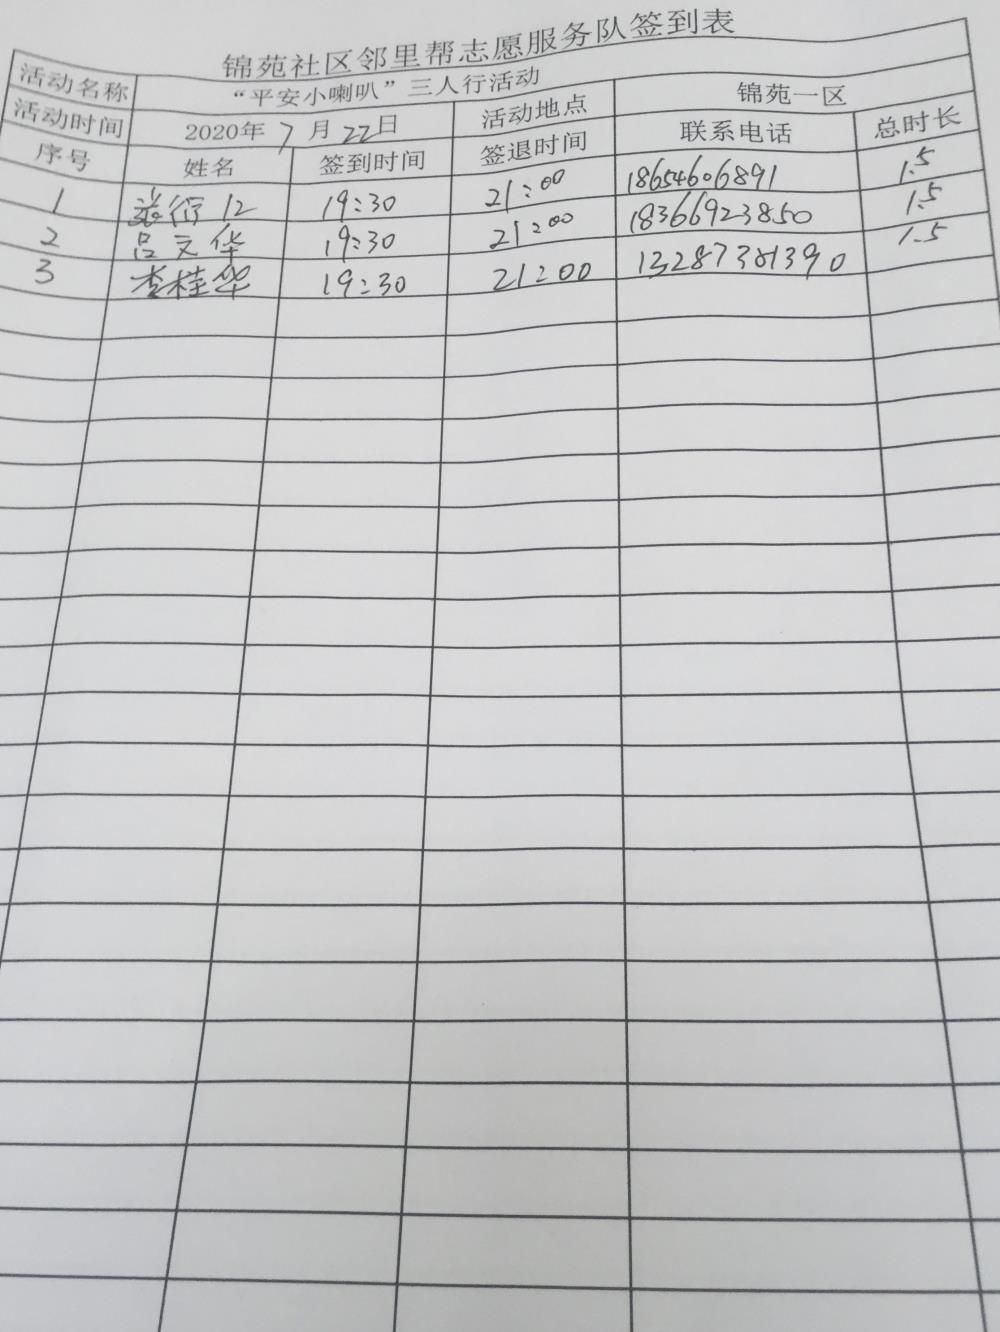 锦苑社区邻里帮志愿服务队签到表
活动名称 “平安小喇叭”三人行活动
活动时间 2020年 7 月 22 日 活动地点 锦苑一区
序号 姓名 签到时间 签退时间 联系电话 总时长
1 19:30 21:00 18654606891 1.5
2 吕文华 19:30 21:00 18366923850 1.5
3 李桂华 19:30 21:00 13287381390 1.5